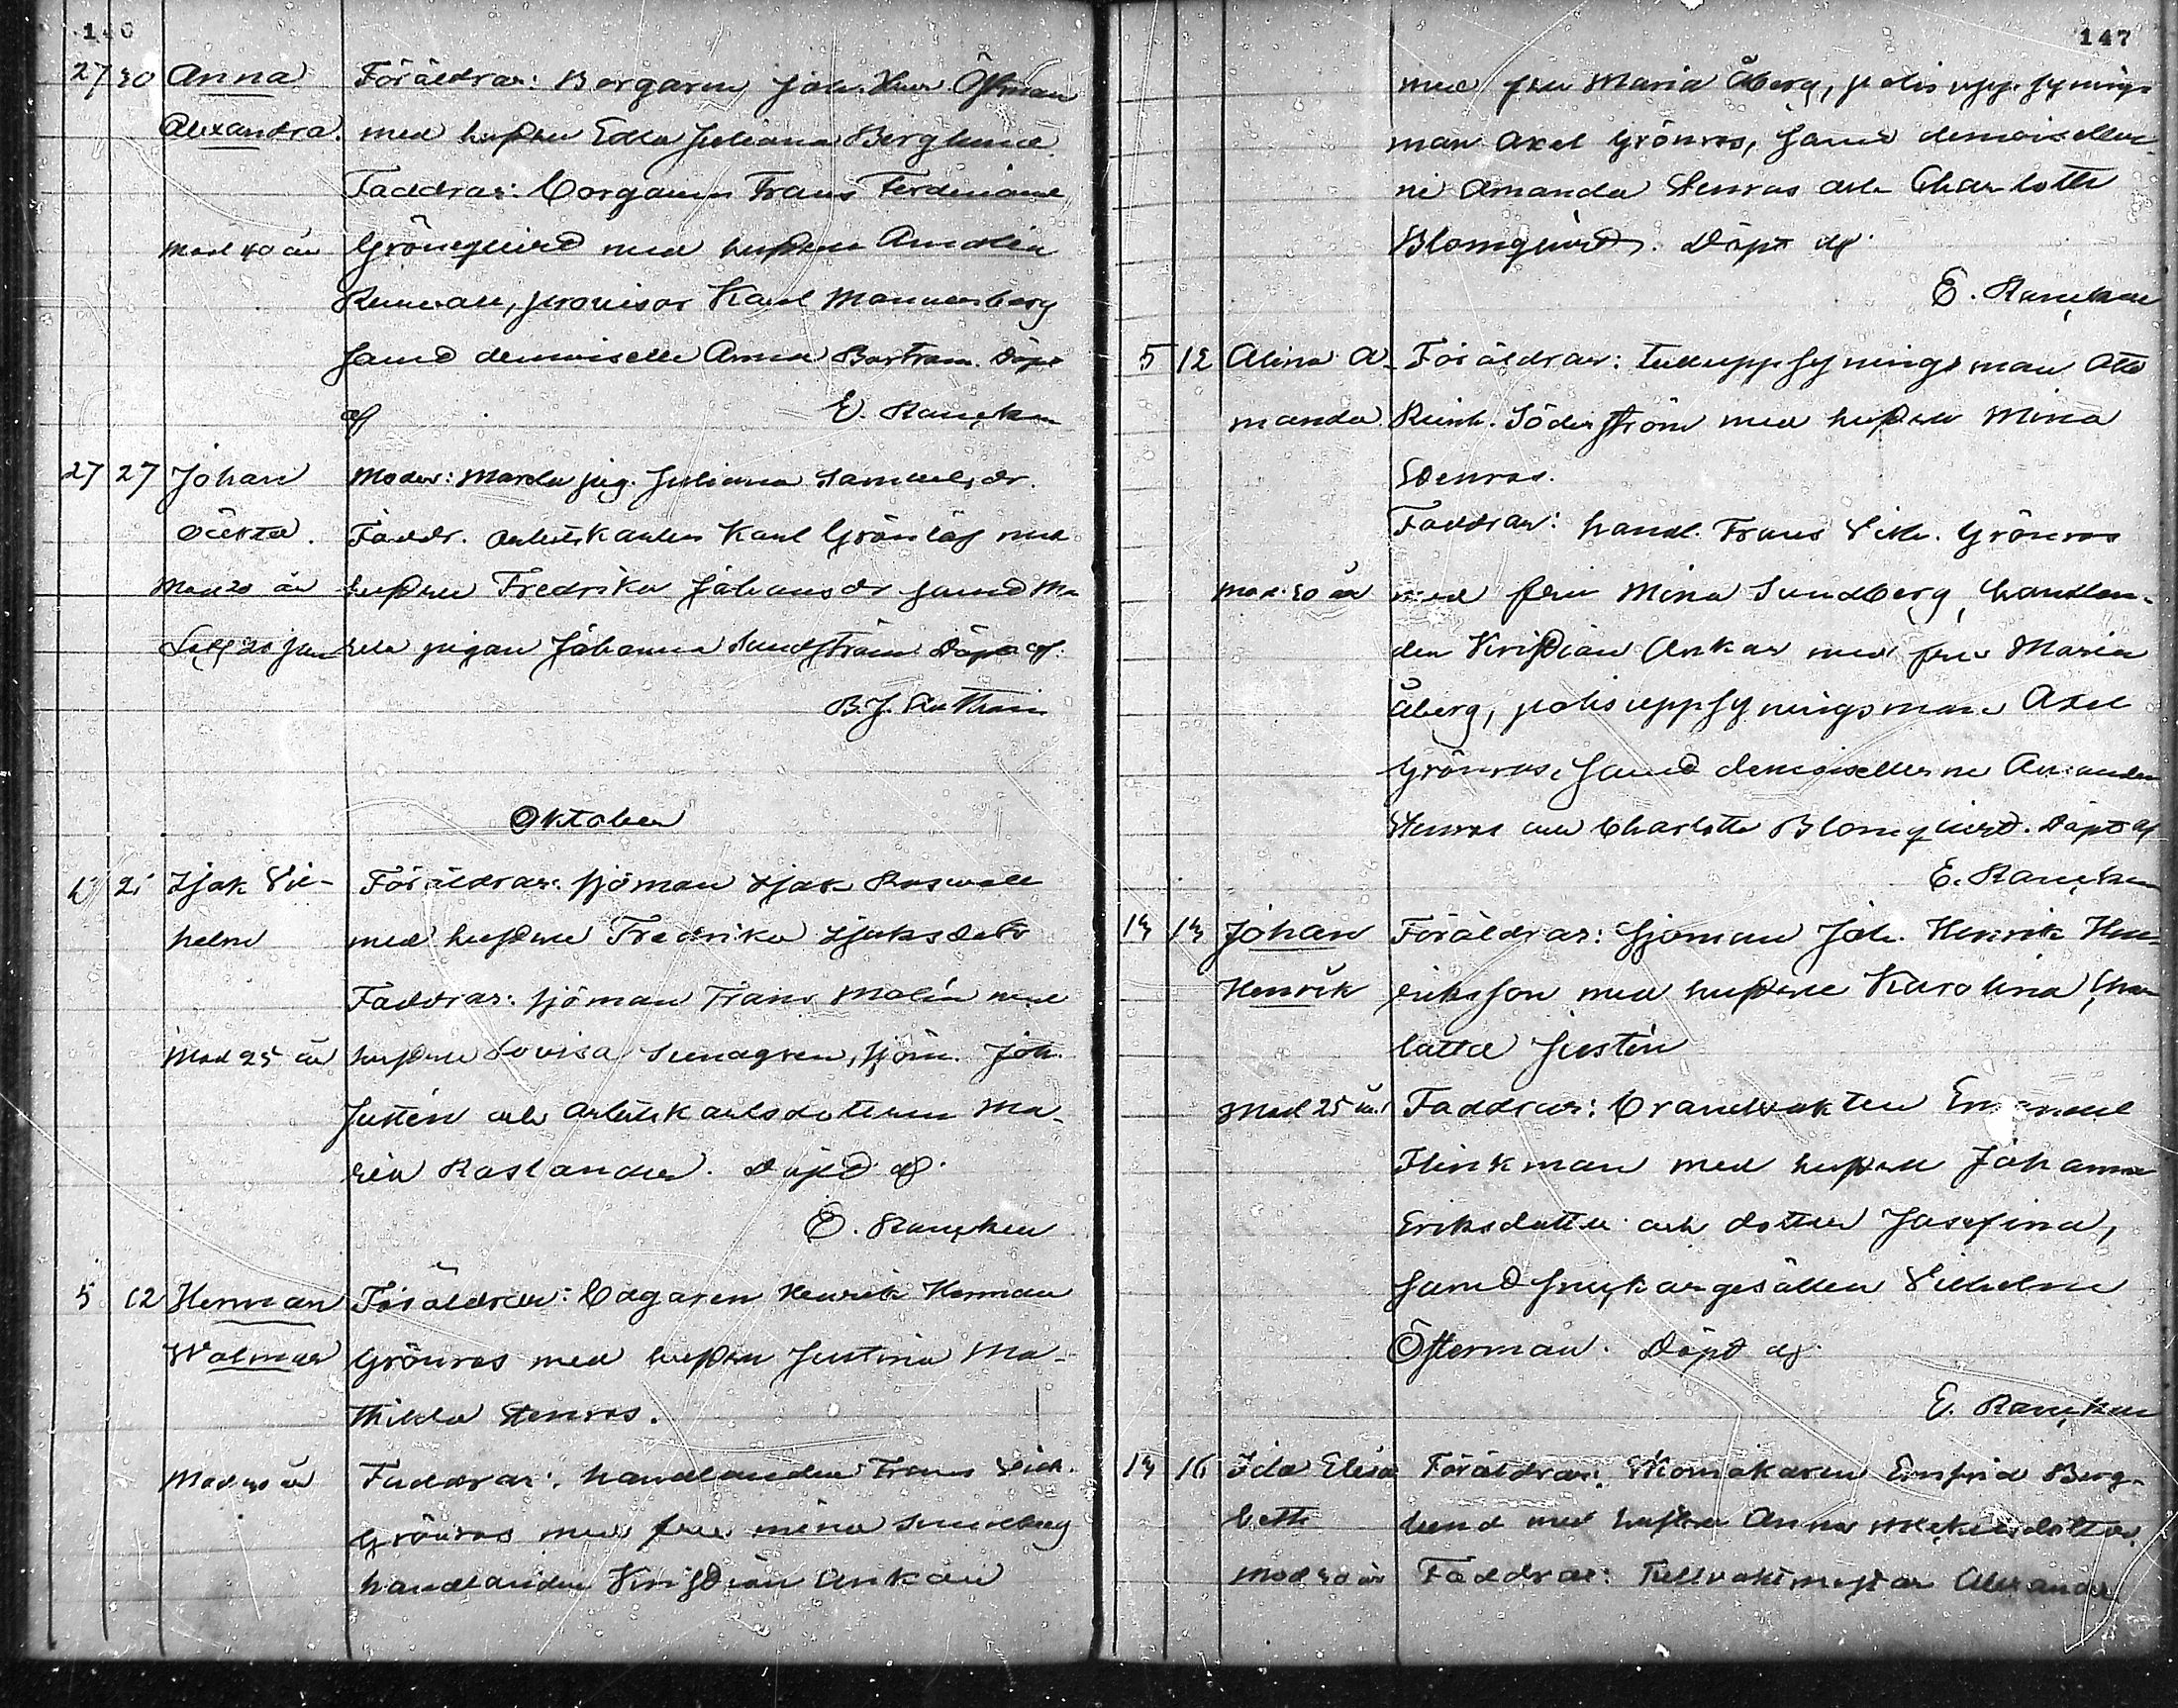 146
27 30 Anna Föräldrar: Borgaren Joh. Henr. Östman
Alexandra. med hustru Edla Juliana Berglund.
Faddrar: Borgaren Frans Ferdinand
Mod 40 år Grönqvist med hustru Amalia
provisor Karl Mannerberg
samt demoiselle Anna Bartram. Döpt
af E. Rancken
27 27 Johan Moder: Marela pig. Juliana Samuelsdr.
oäkta. Faddr. arbetskarlen Karl Grönlöf med
Mod 20 år hustru Fredrika Johansdr samt Ma
rela pigan Johanna Sundström Döpt af.
Oktober
21 Isak Vil- Föräldrar: sjöman Isak Roswall
helm med hustru Fredrika Isaksdotr
Faddrar: sjöman Frans Malin med
Mod 25 år hustru Lovisa Sundgren, sjöm. Joh.
Justén och arbetskarlsdottern Ma-
ria Roslander. Döpt af.
E. Rancken
5 12 Herman Föräldrar: Bagaren Henrik Herman
Walmar Grönros med hustru Justina Ma-
thilda Stenros.
Faddrar: handlanden Frans Vilh.
Grönros med fru Mina Sundberg
handlanden Kristian Ankar
147
med fru Maria Åberg, polisuppsynings
man Axel Grönros, samt demoiseller-
ne Amanda Stenros och Charlotte
Blomqvist. Döpt af.
E. Rancken
5 12 Alina A- Föräldrar: tulluppsyningsman Otto
manda Reinh. Söderström med hustru Mina
Stenros.
Faddrar: handl. Frans Vilh. Grönros
Mod. 30 år med fru Mina Sundberg, handlan-
den Kristian Ankar med fru Maria
Åberg, polisuppsyningsman Axel
Grönros, samt demoisellerne Amanda
Stenros och Charlotte Blomqvist. Döpt af
E. Rancken
Johan Föräldrar: Sjöman Joh. Henrik Hen-
Henrik riksson med hustru Karolina Char
lotta Justén
Mod 25 år Faddrar: Brandvakten Emanuel
Flinkman med hustru Johanna
Eriksdotter och dotter Josefina,
samt snickargesällen Vilhelm
Österman. Döpt af.
E. Rancken
16 Ida Elisa Föräldrar: Skomakaren Enfrid Berg-
beth lund med hustru Anna Mickelsdotter.
Mod 30 år Faddrar: Tullvaktmästar Alexander